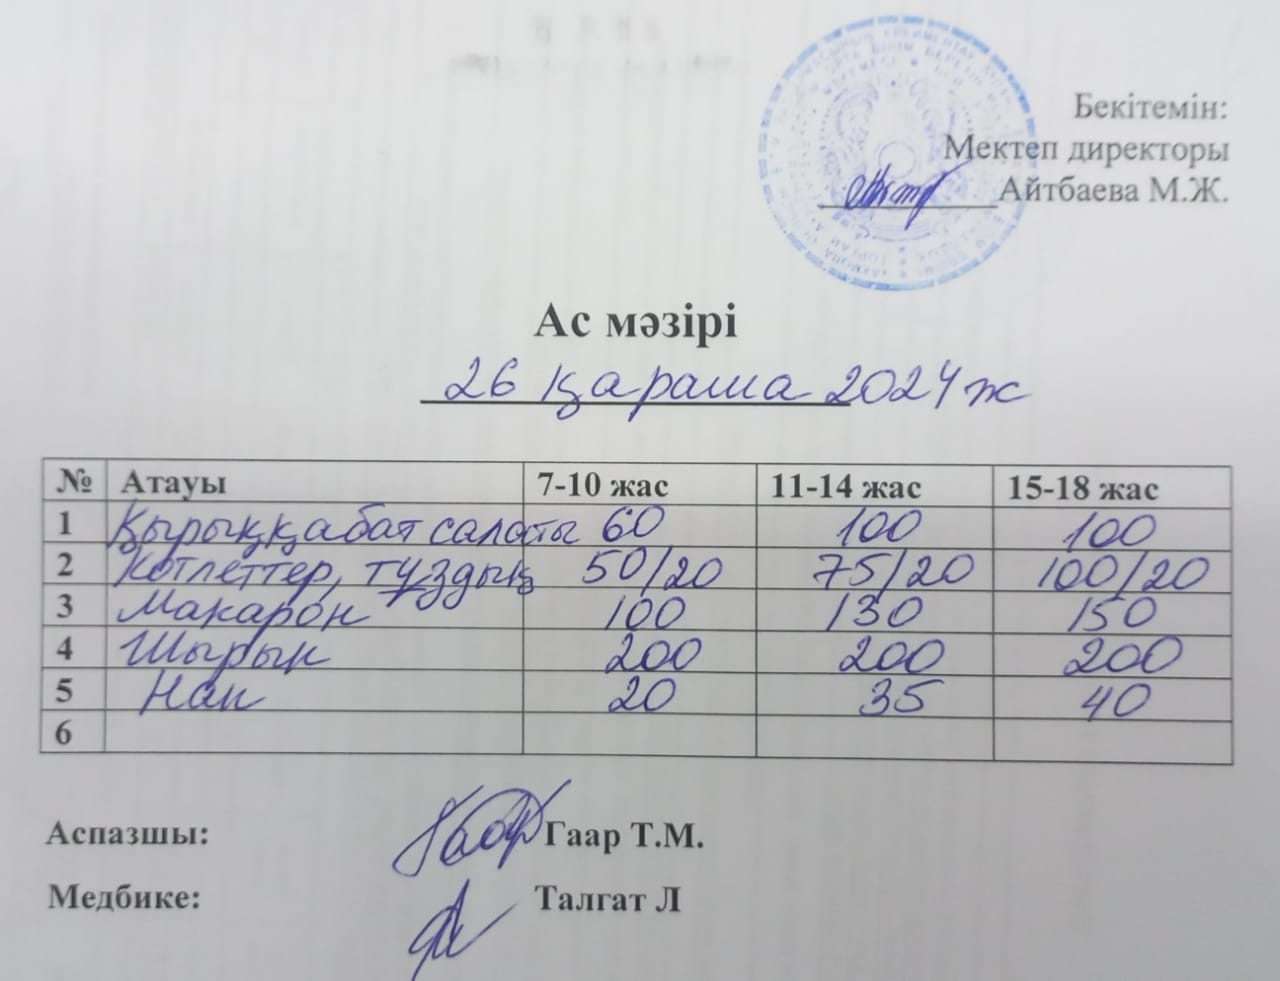 Бекітемін:
Мектеп директоры
Айтбаева М.Ж.
Ас мәзірі
26 қараша 2024 ж
№ Атауы 7-10 жас 11-14 жас 15-18 жас
1 Қырыққабат салаты 60 100 100
2 Котлеттер, тұздық 50/20 75/20 100/20
3 Макарон 100 130 150
4 Шырын 200 200 200
5 Нан 20 35 40
6
Аспазшы: Гаар Т.М.
Медбике: Талгат Л